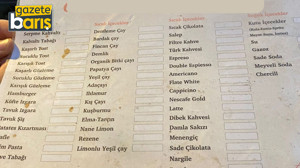 gazete
barış
Serpme Kahvaltı
Kahvaltı Tabağı
Kaşarlı Tost
Sucuklu Tost
Karışık Tost
Kaşarlı Gözleme
Patatesli Gözleme
Karışık Gözleme
Hamburger
Köfte Izgara
Tavuk Izgara
Tavuk Şiş
Patates Kızartması
Pasta
Tabağı
Demleme Çay
Bardak çay
Fincan Çay
Demlik
Organik Bitki çayı
Papatya Çayı
Yeşil çay
Adaçayı
Ihlamur
Kış Çayı
Kuşburnu
Elma-Tarçın
Nane Limon
Rezene
Limonlu Yeşil çay
Sıcak Çikolata
Salep
Filtre Kahve
Türk Kahvesi
Espresso
Double Espresso
Americano
Flate White
Cappicino
Nescafe Gold
Latte
Dibek Kahvesi
Damla Sakızı
Menengiç
Sade Çikolata
Nargile
Kutu İçecekler
Su
Gazoz
Sade Soda
Meyveli Soda
Cherill